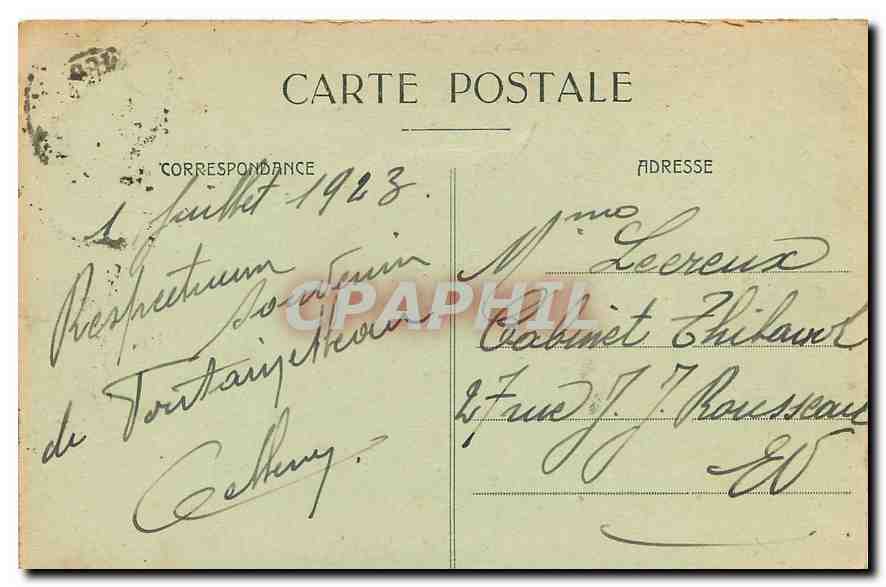 CARTE POSTALE
CORRESPONDANCE
1 Juillet 1923.
Respectueux
souvenir
de Fontainebleau
ADRESSE
Mme Lecreux
Cabinet Thibault
27 rue J. J. Rousseau
EV
CPAPHIL